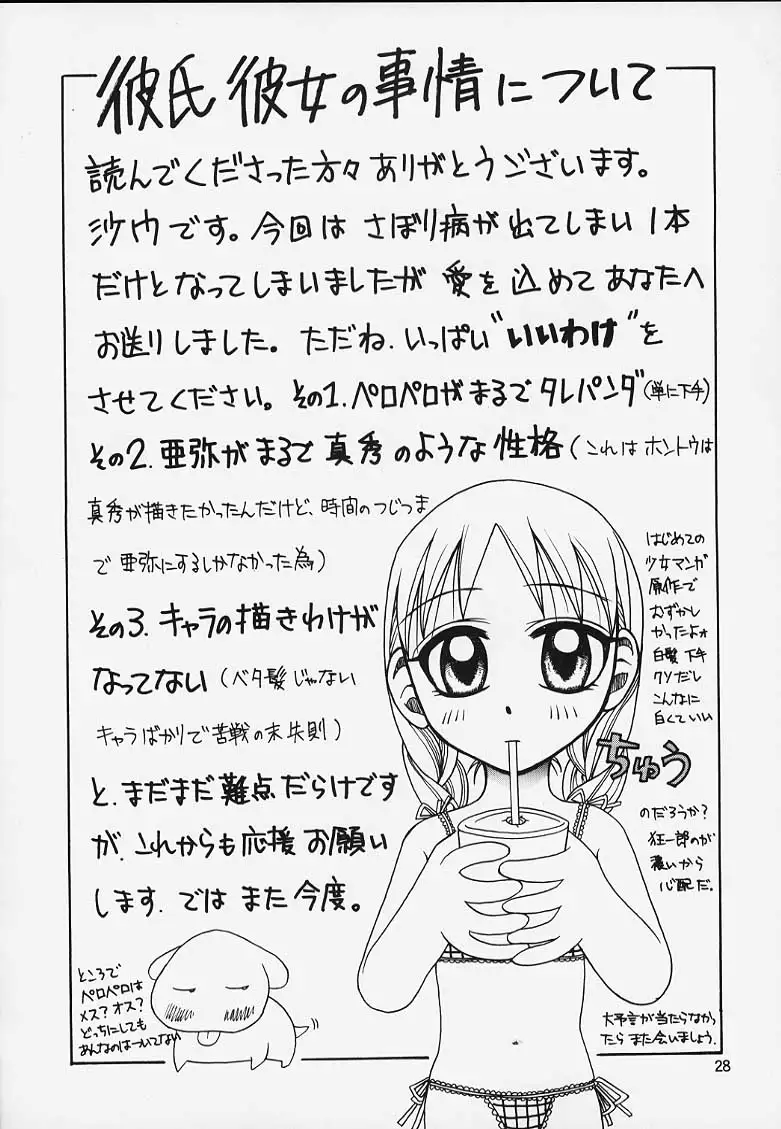 彼氏彼女の事情について
読んでくださった方々ありがとうございます。
沙ウです。今回は さぼり病が出てしまい 1本
だけとなってしまいましたが 愛を込めて あなたへ
お送りしました。ただね、いっぱい"いいわけ"を
させてください。その1.ペロペロがまるでタレパンダ(単に下手)
その2.亜弥がまるで真秀のような性格(これはホントウは
真秀が描きたかったんだけど、時間のつじつま
で亜弥にするしかなかった為)
その3.キャラの描きわけが
なってない(ベタ髪じゃない
キャラばかりで苦戦の末失則)
と、まだまだ難点だらけです
が、これからも応援お願い
します、では また今度。
はじめての
少女マンガ
原作で
むずかし
かったよォ
白髪 下手
クソだし
こんなに
白くていい
のだろうか?
狂一郎のが
濃いから
心配だ。
ちゅう
ところで
ペロペロは
メス?オス?
どっちにしても
あんなのはついてない
大予言が当たらなかっ
たら また会いましょう。
28